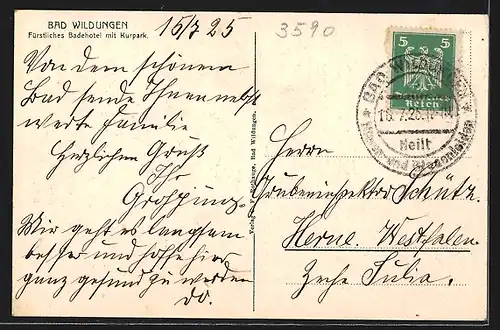 BAD WILDUNGEN
Fürstliches Badehotel mit Kurpark.
15/7 25
3590
Von dem schönen
Bad sende Ihnen nebst
werte Familie
Herzlichen Gruß
Ihr
Mir geht es langsam
besser und hoffe hier
ganz gesund zu werden
DO.
Bad Wildungen.
5 5
Deutsches
Reich
* BAD WILDUNGEN *
16.7.25
Heilt
Nieren- und Blasenleiden
Herrn
Grubeninspektor Schütz.
Herne. Westfalen.
Zeche Julia.